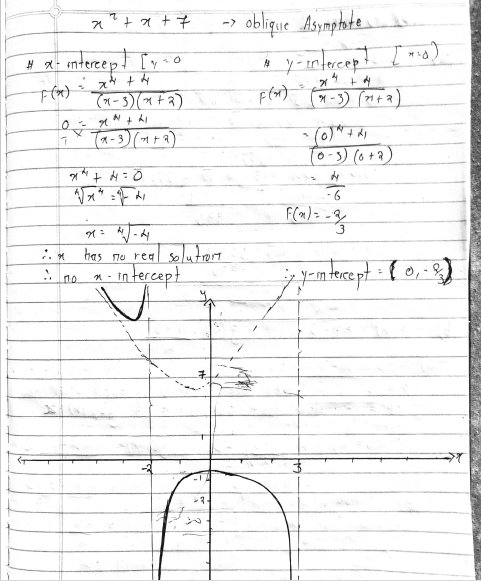 x² + x + 7 → oblique Asymptote
# x-intercept [y=0
F(x) = x⁴ + 4 / (x-3)(x+2)
0 = x⁴ + 4 / (x-3)(x+2)
x⁴ + 4 = 0
⁴√x⁴ = ⁴√-4
x = ⁴√-4
∴ x has no real solution
∴ no x-intercept
# y-intercept [x=0)
F(x) = x⁴ + 4 / (x-3)(x+2)
= (0)⁴ + 4 / (0-3)(0+2)
= 4 / -6
F(x) = -2/3
∴ y-intercept = (0, -2/3)
y
7
1
-2 3 x
-1
-2